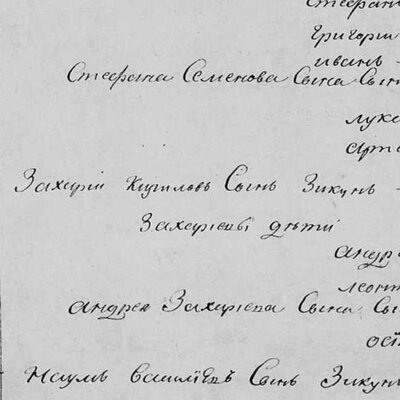 Стефанъ
Григорій
иванъ
Стефана Семенова Сына Сын
лука
арте
Захарій Кириловъ Сынъ Зикунъ
Захарьевы дѣти
андр
леонт
андрея Захарьева Сына Сы
ос
Наумъ василіевъ Сынъ Зикун